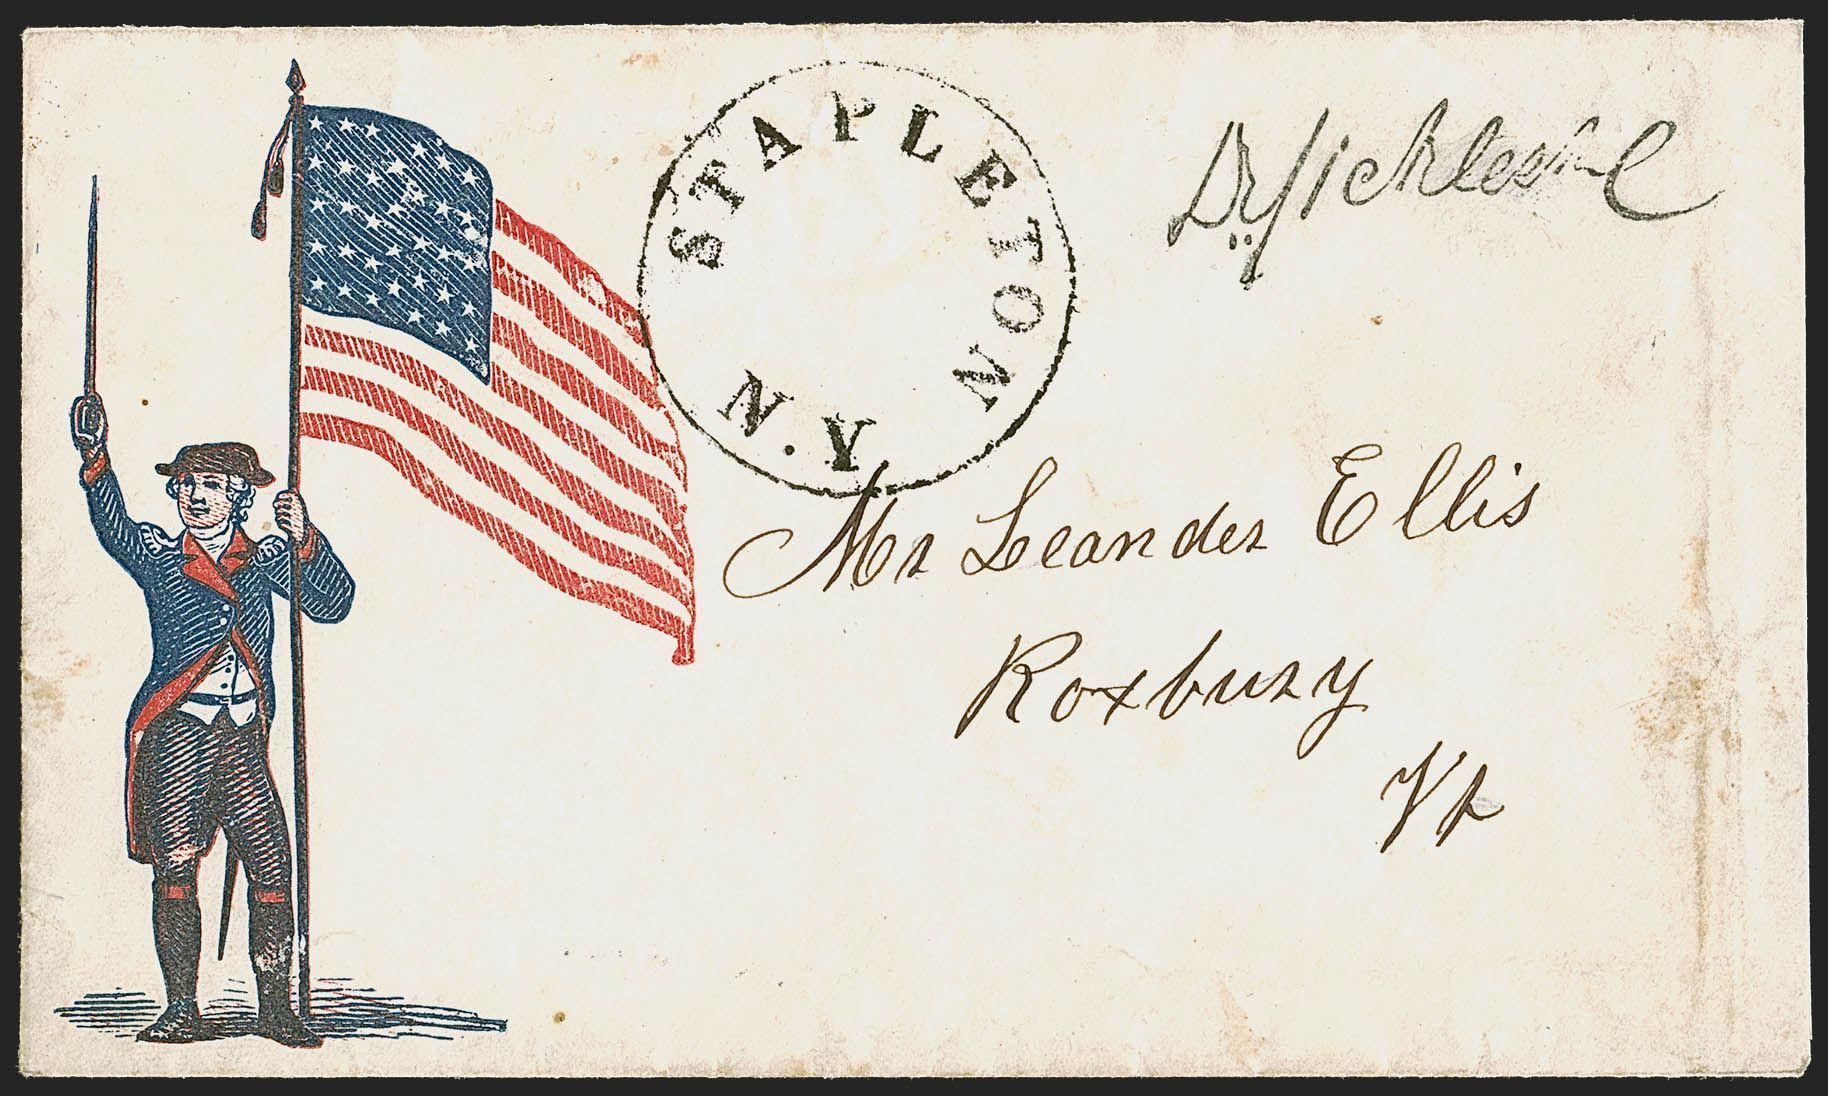 STAPLETON
N.Y.
D. Sickles M.C
Mr Leander Ellis
Roxbury
Vt